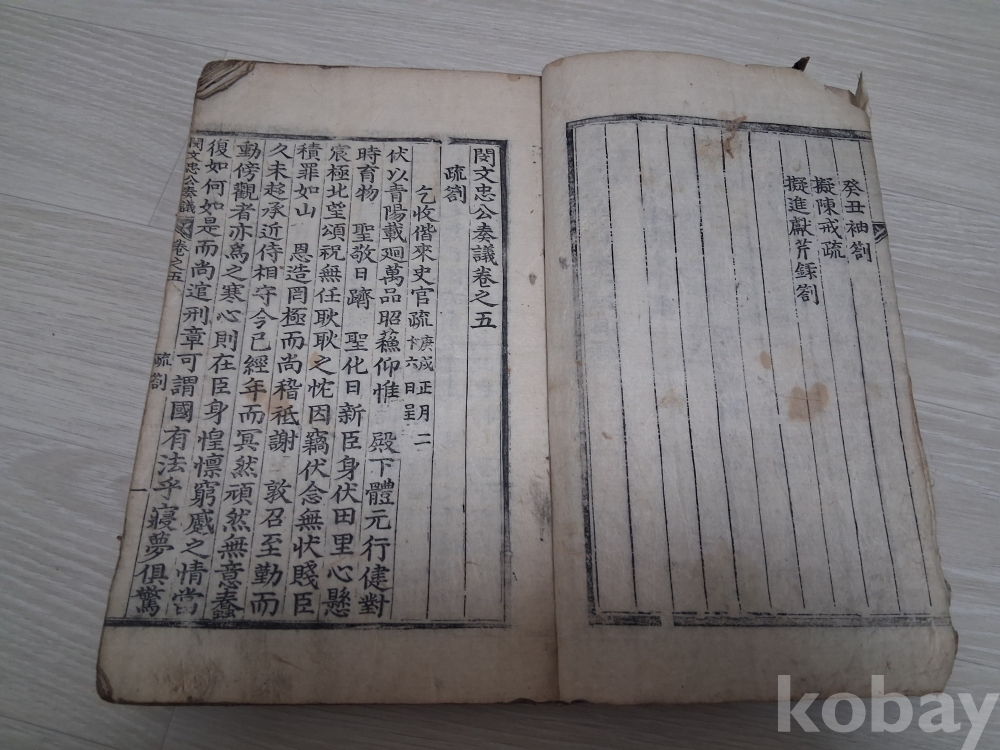 癸丑袖劄
擬陳戒疏
擬進獻芹錄劄
閔文忠公奏議卷之五
疏劄
乞收偕來史官疏 庚戌正月二十六日呈
伏以青陽載廻萬品昭蘓仰惟 殿下體元行健對
時育物 聖敬日躋 聖化日新臣身伏田里心懸
宸極北望頌祝無任耿耿之忱因竊伏念無状賤臣
積罪如山 恩造罔極而尚稽祗謝 敦召至勤而
久未趍承近侍相守今已經年而冥然頑然無意蠢
動傍觀者亦爲之寒心則在臣身惶懍窮蹙之情當
復如何如是而尚逭刑章可謂國有法乎寢夢俱驚
閔文忠公奏議 卷之五 疏劄 一
kobay